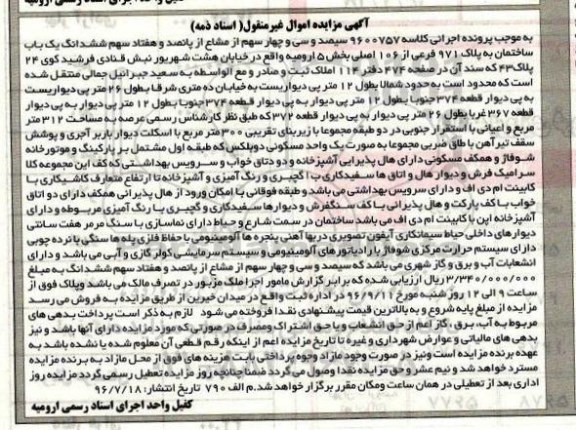 آگهی مزایده اموال غیرمنقول( اسناد ذمه)
به موجب پرونده اجرائی کلاسه ۹۶۰۰۷۵۷ سیصد و سی و چهار سهم از مشاع از پانصد و هفتاد سهم ششدانگ یک باب
ساختمان به پلاک ۹۷۱ فرعی از ۱۰۶ اصلی بخش ۵ ارومیه واقع در خیابان هشت شهریور نبش قنادی فرشید کوی ۲۴
پلاک ۴۳ که سند آن در صفحه ۴۷۴ دفتر ۱۱۴ املاک ثبت و صادر و مع الواسطه به سعید جبرائیل جمالی منتقل شده
است که محدود است به حدود شمالا بطول ۱۲ متر پی دیواریست به خیابان ده متری شرقا بطول ۲۶ متر پی دیواریست
به پی دیوار قطعه ۳۷۴ جنوبا بطول ۱۲ متر پی دیوار به پی دیوار قطعه ۳۷۴ جنوبا بطول ۱۲ متر پی دیوار به پی دیوار
قطعه ۳۶۷ غربا بطول ۲۶ متر پی دیوار به پی دیوار قطعه ۳۷۲ که طبق نظر کارشناس رسمی عرصه به مساحت ۳۱۲ متر
مربع و اعیانی با استقرار جنوبی در دو طبقه مجموعا با زیربنای تقریبی ۳۰۰ متر مربع با اسکلت دیوار باربر آجری و پوشش
سقف تیرآهن با طاق ضربی مجموعا به صورت یک واحد مسکونی دوبلکس که طبقه اول مشتمل بر پارکینگ و موتورخانه
شوفاژ و همکف مسکونی دارای هال پذیرایی آشپزخانه و دو دتاق خواب و سرویس بهداشتی که کف این مجموعه کلا
سرامیک فرش و دیوار هال و اتاق ها سفیدکاری با گچبری و رنگ آمیزی و آشپزخانه تا ارتفاع متعارف کاشیکاری با
کابینت ام دی اف و دارای سرویس بهداشتی می باشد و طبقه فوقانی با امکان ورود از هال پذیرائی همکف دارای دو اتاق
خواب با کف پارکت و هال پذیرائی با کف سنگفرش و دیوارها سفیدکاری و گچبری با رنگ آمیزی مربوطه و دارای
آشپزخانه اپن با کابینت ام دی اف می باشد ساختمان در سمت شارع و حیاط دارای نماسازی با سنگ مرمر هفت سانتی
دیوارهای داخلی حیاط سیمانکاری آیفون تصویری دربها آهنی پنجره ها آلومینیومی با حفاظ فلزی پله ها سنگی با نرده چوبی
دارای سیستم حرارت مرکزی شوفاژ با رادیاتور های آلومینیومی و سیستم سرمایشی کولر گازی و آبی می باشد و دارای
انشعابات آب و برق و گاز شهری می باشد که سیصد و سی و چهار سهم از مشاع از پانصد و هفتاد سهم ششدانگ به مبلغ
۳/۳۴۰/۰۰۰/۰۰۰ ریال ارزیابی شده که برابر گزارش مامور اجرا ملک مزبور در تصرف مالک می باشد و پلاک فوق از
ساعت ۹ الی ۱۲ روز شنبه مورخ ۹۶/۹/۱۱ در اداره ثبت واقع در میدان خیرین از طریق مزایده به فروش می رسد
مزایده از مبلغ پایه شروع و به بالاترین قیمت پیشنهادی نقدا فروخته می شود لازم به ذکر است پرداخت بدهی های
مربوط به آب، برق ، گاز اعم از حق انشعاب و یا حق اشتراک و مصرف در صورتی که مورد مزایده دارای آنها باشد و نیز
بدهی های مالیاتی و عوارض شهرداری و غیره تا تاریخ مزایده اعم از اینکه رقم قطعی آن معلوم شده یا نشده باشد به
عهده برنده مزایده است و نیز در صورت وجود مازاد وجوه پرداختی بابت هزینه های فوق از محل مازاد به برنده مزایده
مسترد خواهد شد و نیم عشر و حق مزایده نقدا وصول می گردد ضمنا چنانچه روز مزایده تعطیل رسمی گردد مزایده روز
اداری بعد از تعطیلی در همان ساعت و مکان مقرر برگزار خواهد شد. م الف ۷۹۰ تاریخ انتشار: ۹۶/۷/۱۸
کفیل واحد اجرای اسناد رسمی ارومیه